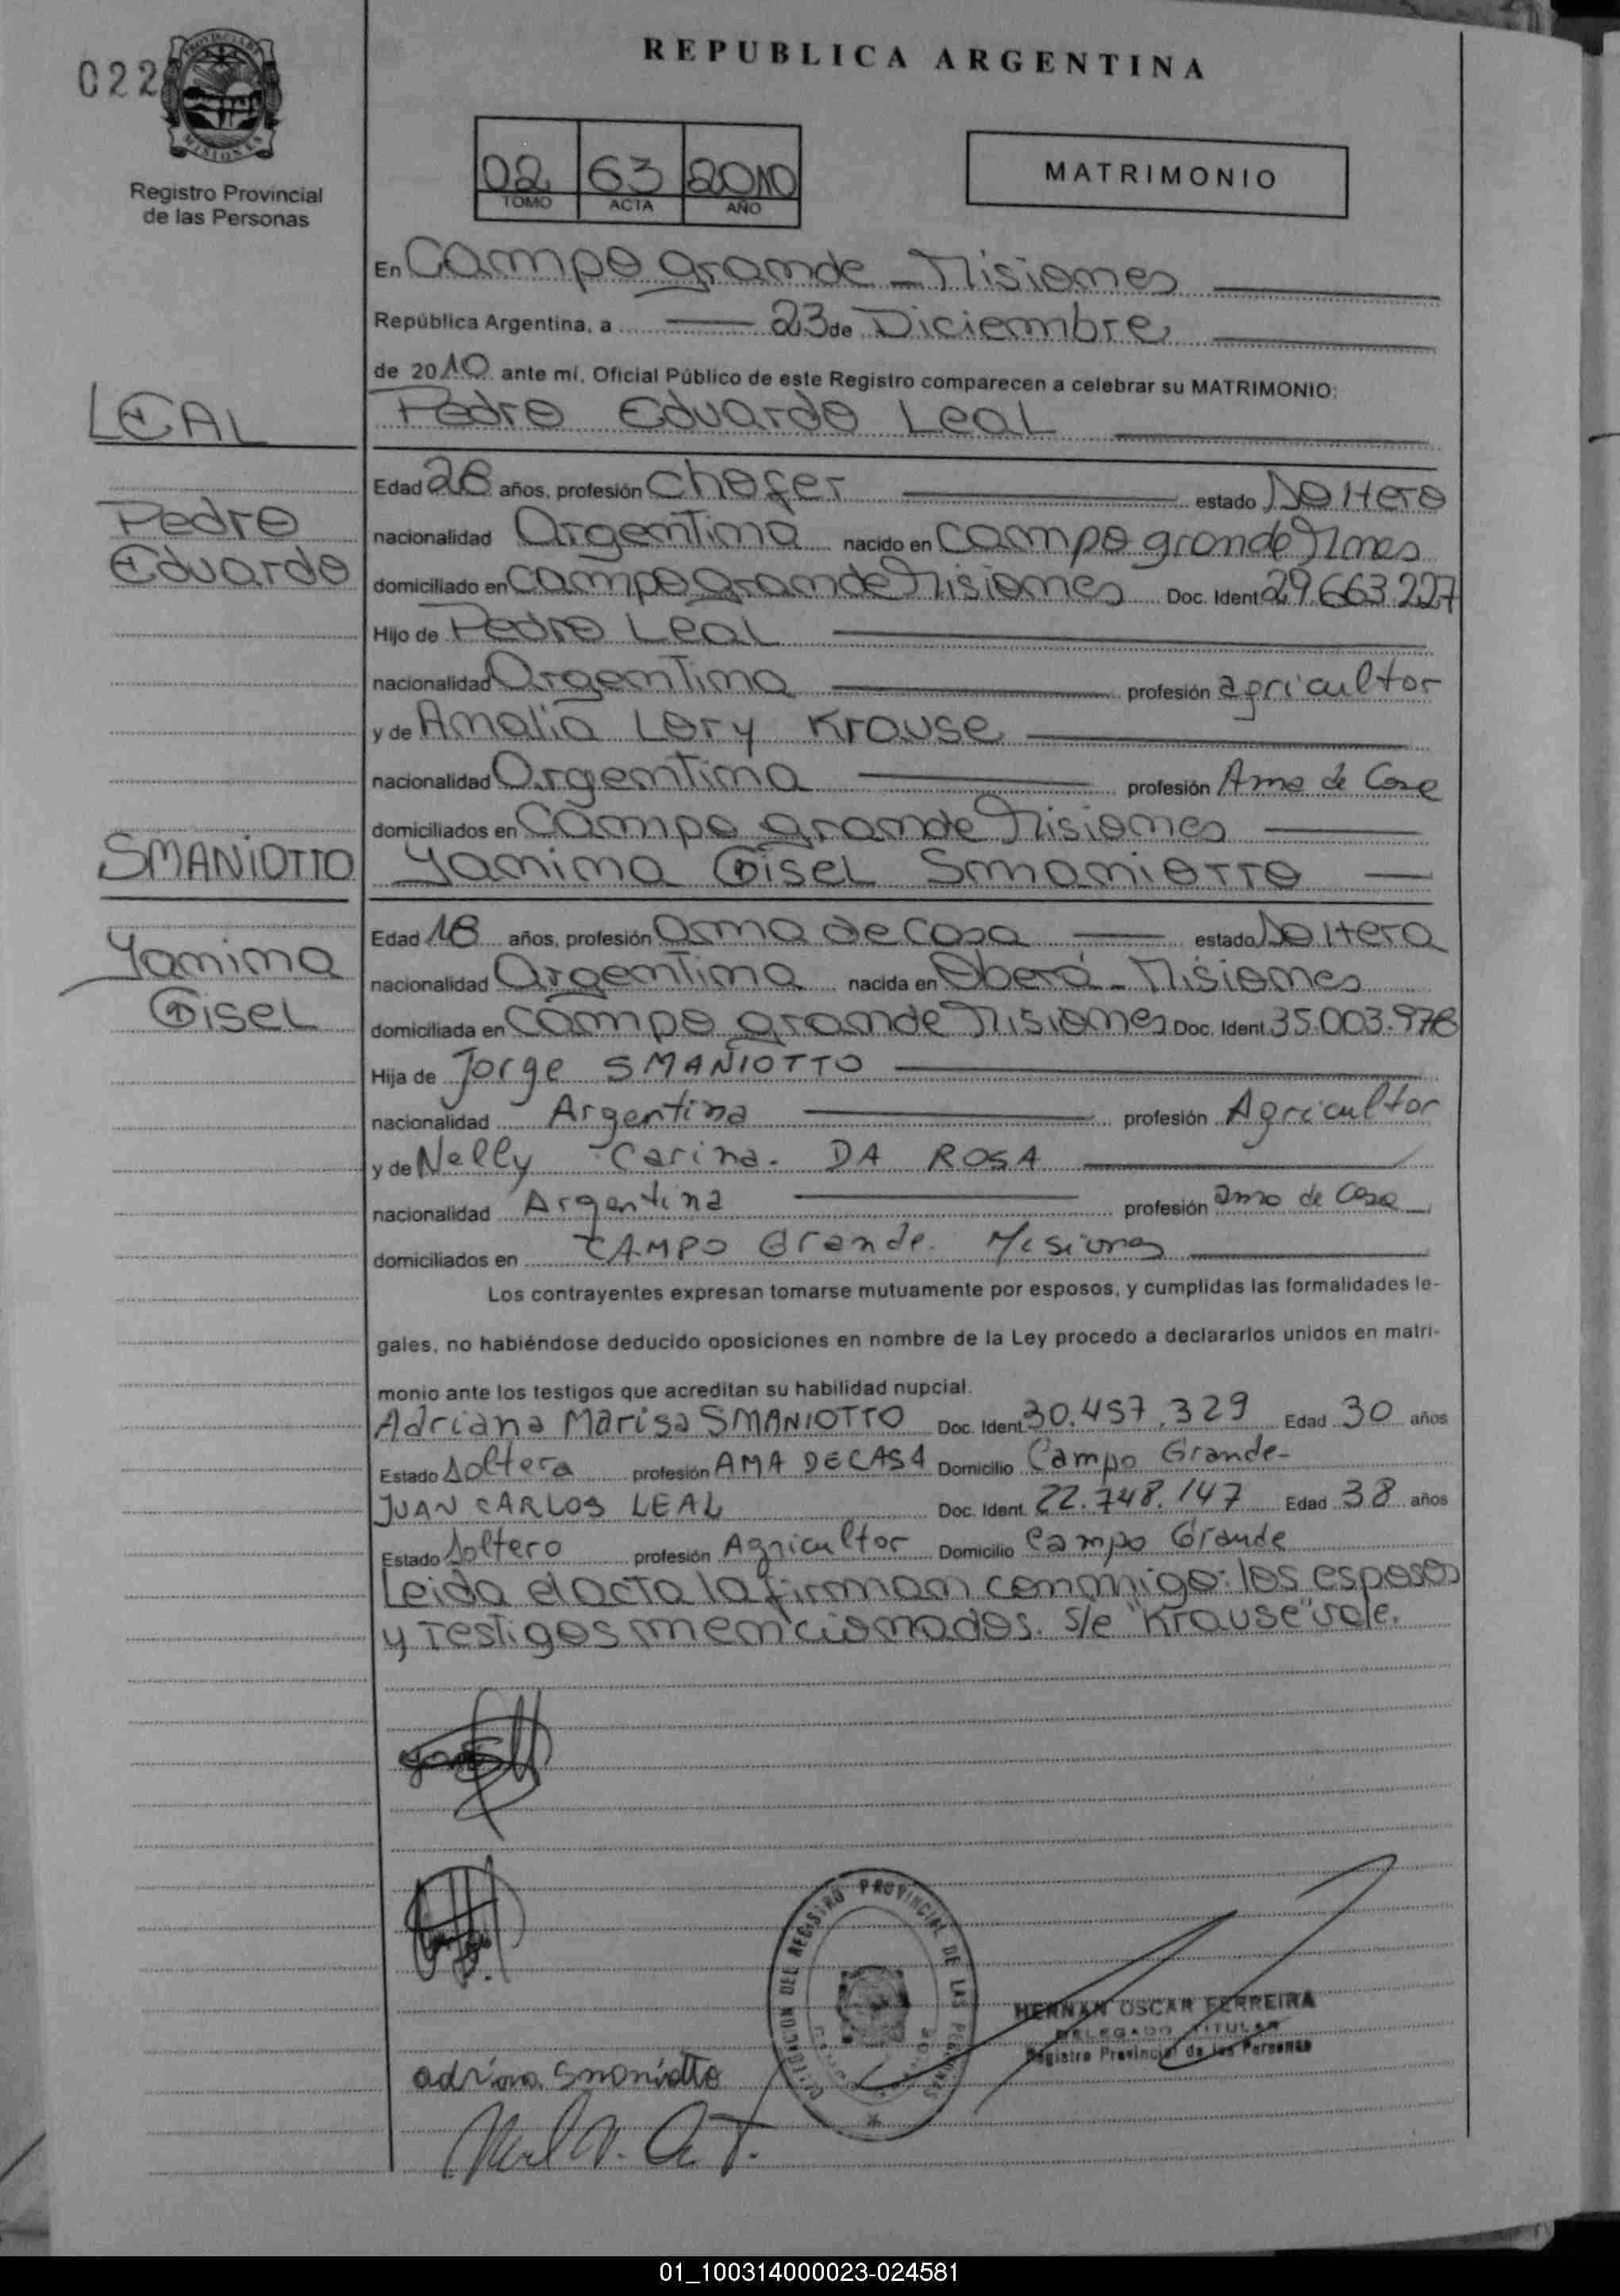 022
PROVINCIA DE
MISIONES
Registro Provincial
de las Personas
REPUBLICA ARGENTINA
02 63 2010
TOMO ACTA AÑO
MATRIMONIO
En Campo grande - Misiones
República Argentina, a 23 de Diciembre
de 2010 ante mí, Oficial Público de este Registro comparecen a celebrar su MATRIMONIO:
LEAL
Pedro Eduardo Leal
Edad 28 años, profesión chofer estado Soltero
Pedro
nacionalidad Argentina nacido en campo grande Mnes
Eduardo
domiciliado en campo grande Misiones Doc. Ident 29.663.227
Hijo de Pedro Leal
nacionalidad Argentina profesión agricultor
y de Amalia Lory Krause
nacionalidad Argentina profesión Ama de Casa
domiciliados en campo grande Misiones
SMANIOTTO
Yanina Gisel Smaniotto
Edad 18 años, profesión ama de casa estado Soltera
Yanina
nacionalidad Argentina nacida en Oberá - Misiones
Gisel
domiciliada en campo grande Misiones Doc. Ident 35.003.978
Hija de Jorge SMANIOTTO
nacionalidad Argentina profesión Agricultor
y de Nelly Carina. DA ROSA
nacionalidad Argentina profesión ama de casa
domiciliados en CAMPO Grande. Misiones
Los contrayentes expresan tomarse mutuamente por esposos, y cumplidas las formalidades le-
gales, no habiéndose deducido oposiciones en nombre de la Ley procedo a declararlos unidos en matri-
monio ante los testigos que acreditan su habilidad nupcial.
Adriana Marisa SMANIOTTO Doc. Ident 30.457.329 Edad 30 años
Estado Soltera profesión AMA DE CASA Domicilio Campo Grande-
JUAN CARLOS LEAL Doc. Ident. 22.748.147 Edad 38 años
Estado Soltero profesión Agricultor Domicilio Campo Grande
Leida el acta la firman conmigo: los esposos
y testigos mencionados. s/e "Krause" vale.
DEL REGISTRO PROVINCIAL DE LAS PERSONAS
HERNAN OSCAR FERREIRA
DELEGADO TITULAR
Registro Provincial de las Personas
adriana smaniotto
01_100314000023-024581